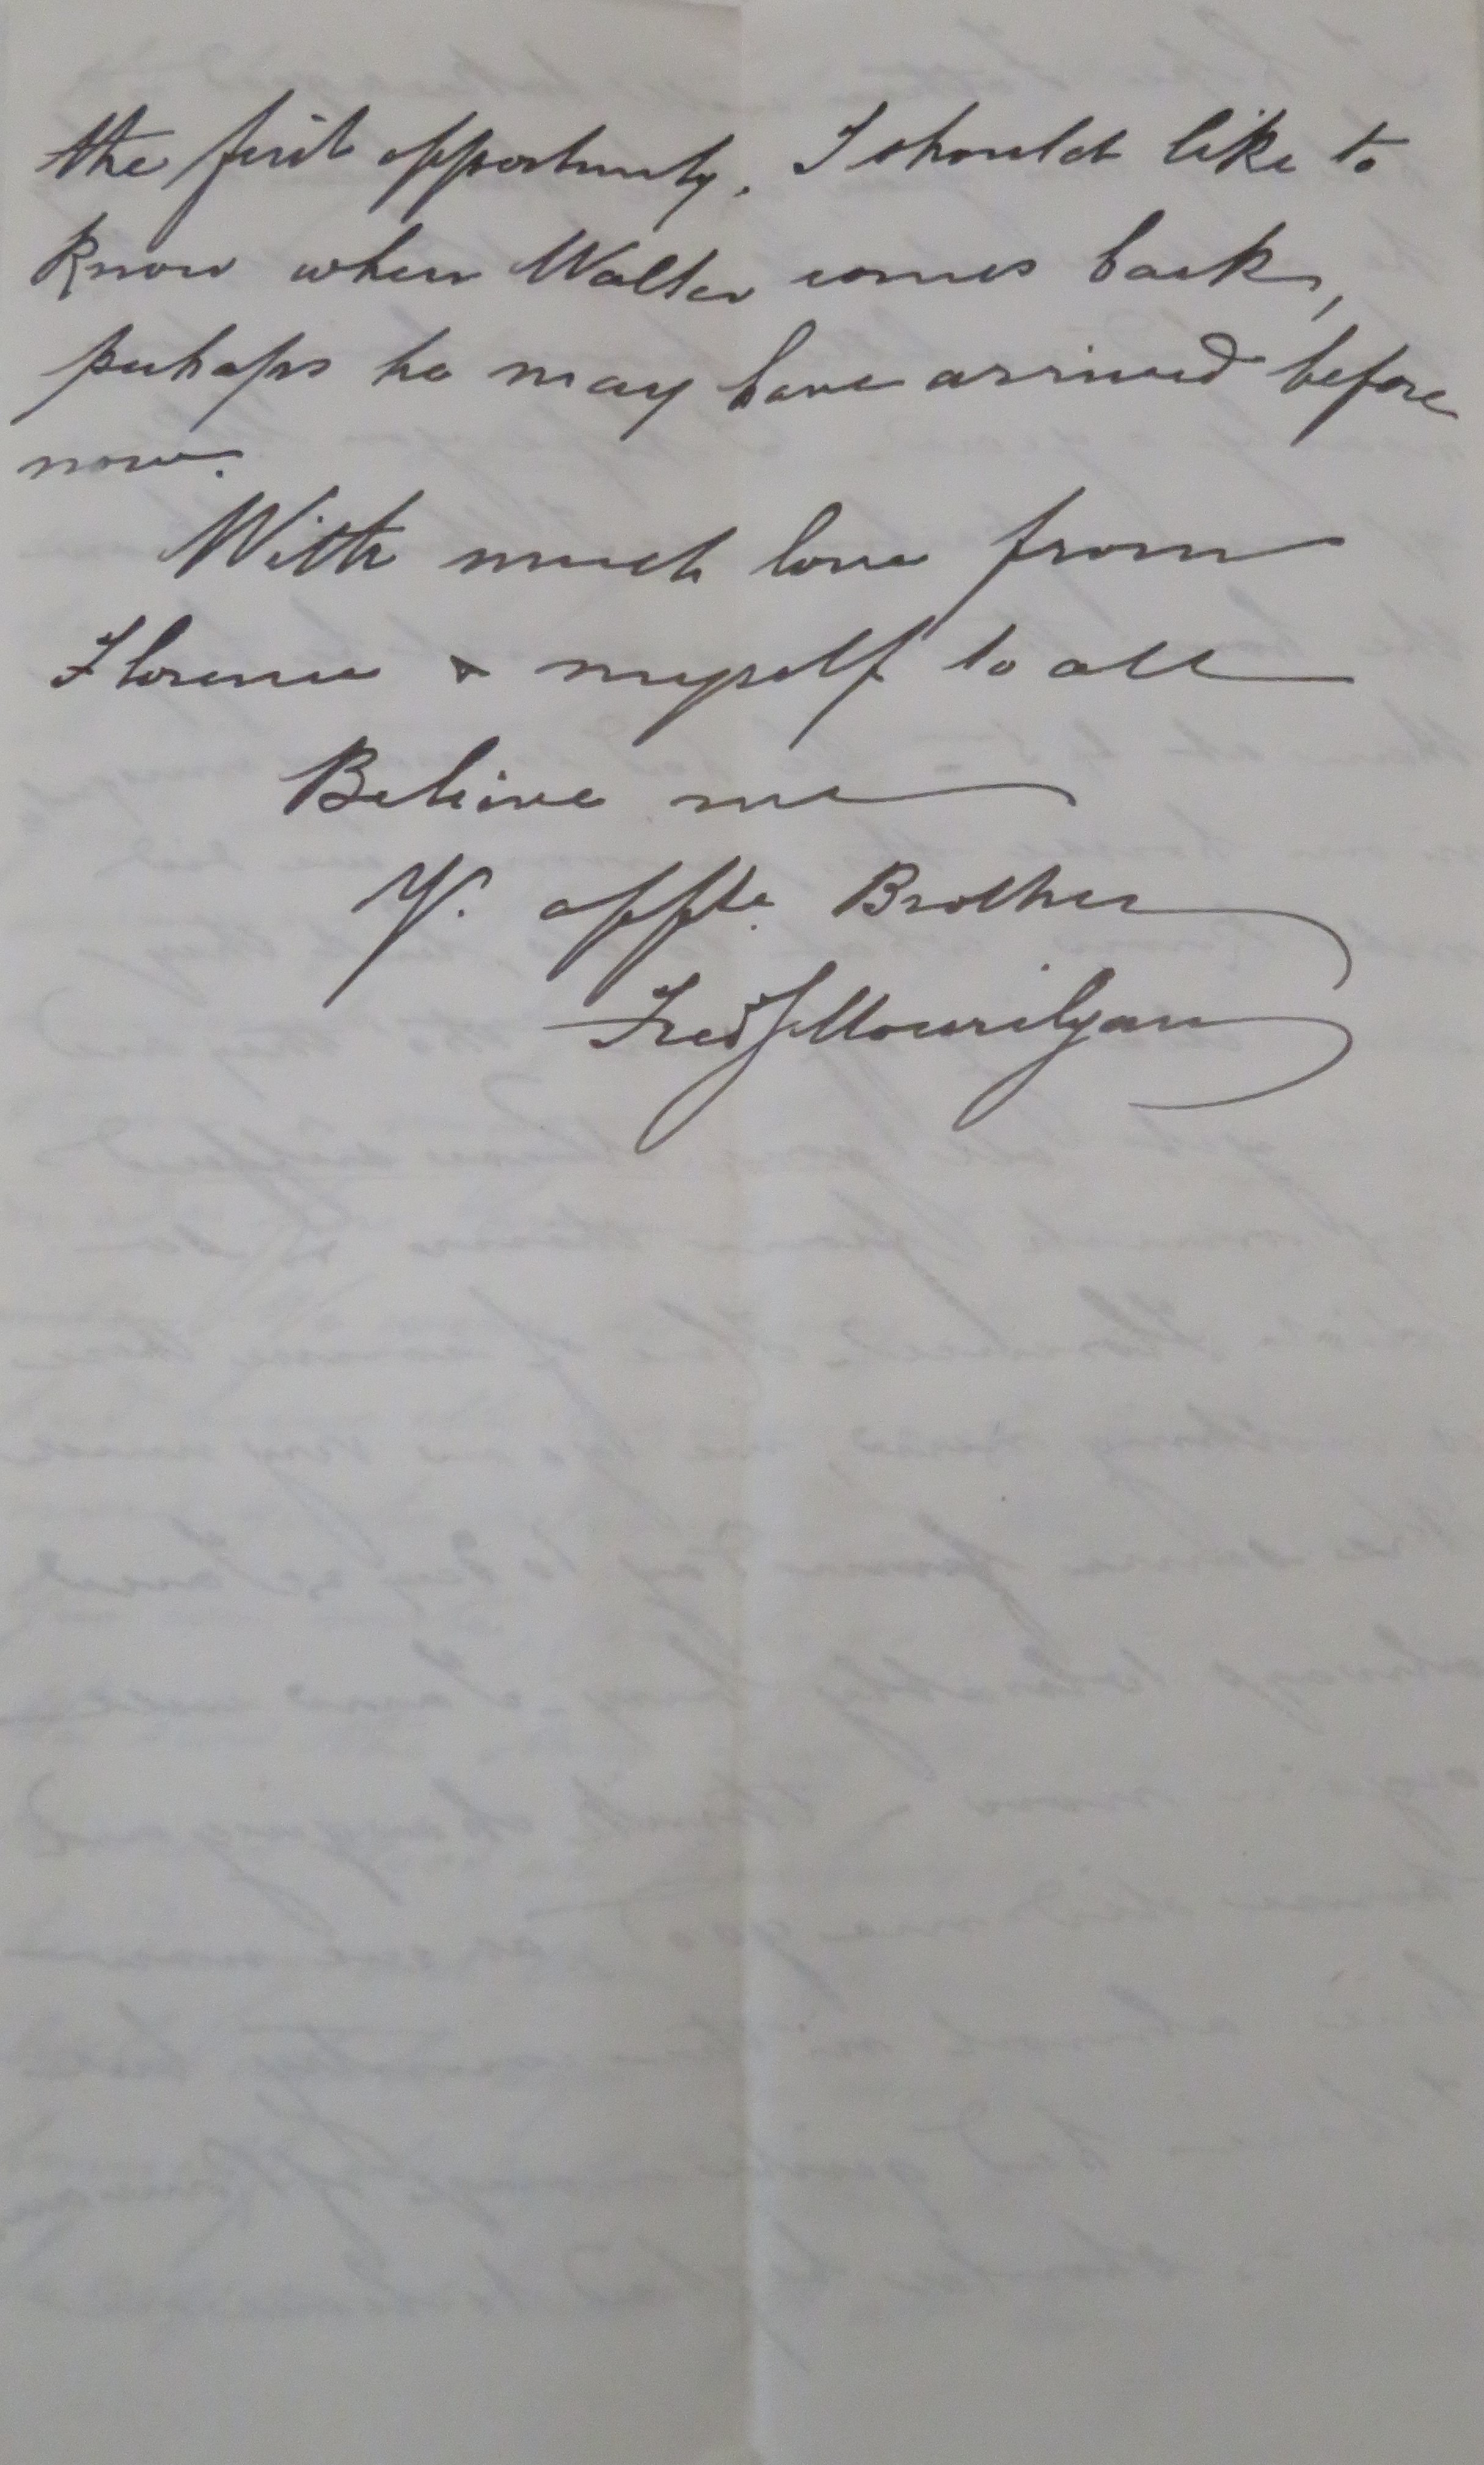 the first opportunity. I should like to
know when Walter comes back,
perhaps he may have arrived before
now.
With much love from
Florence & myself to all
Believe me
Y. affte. Brother
Fred J Mourilyan